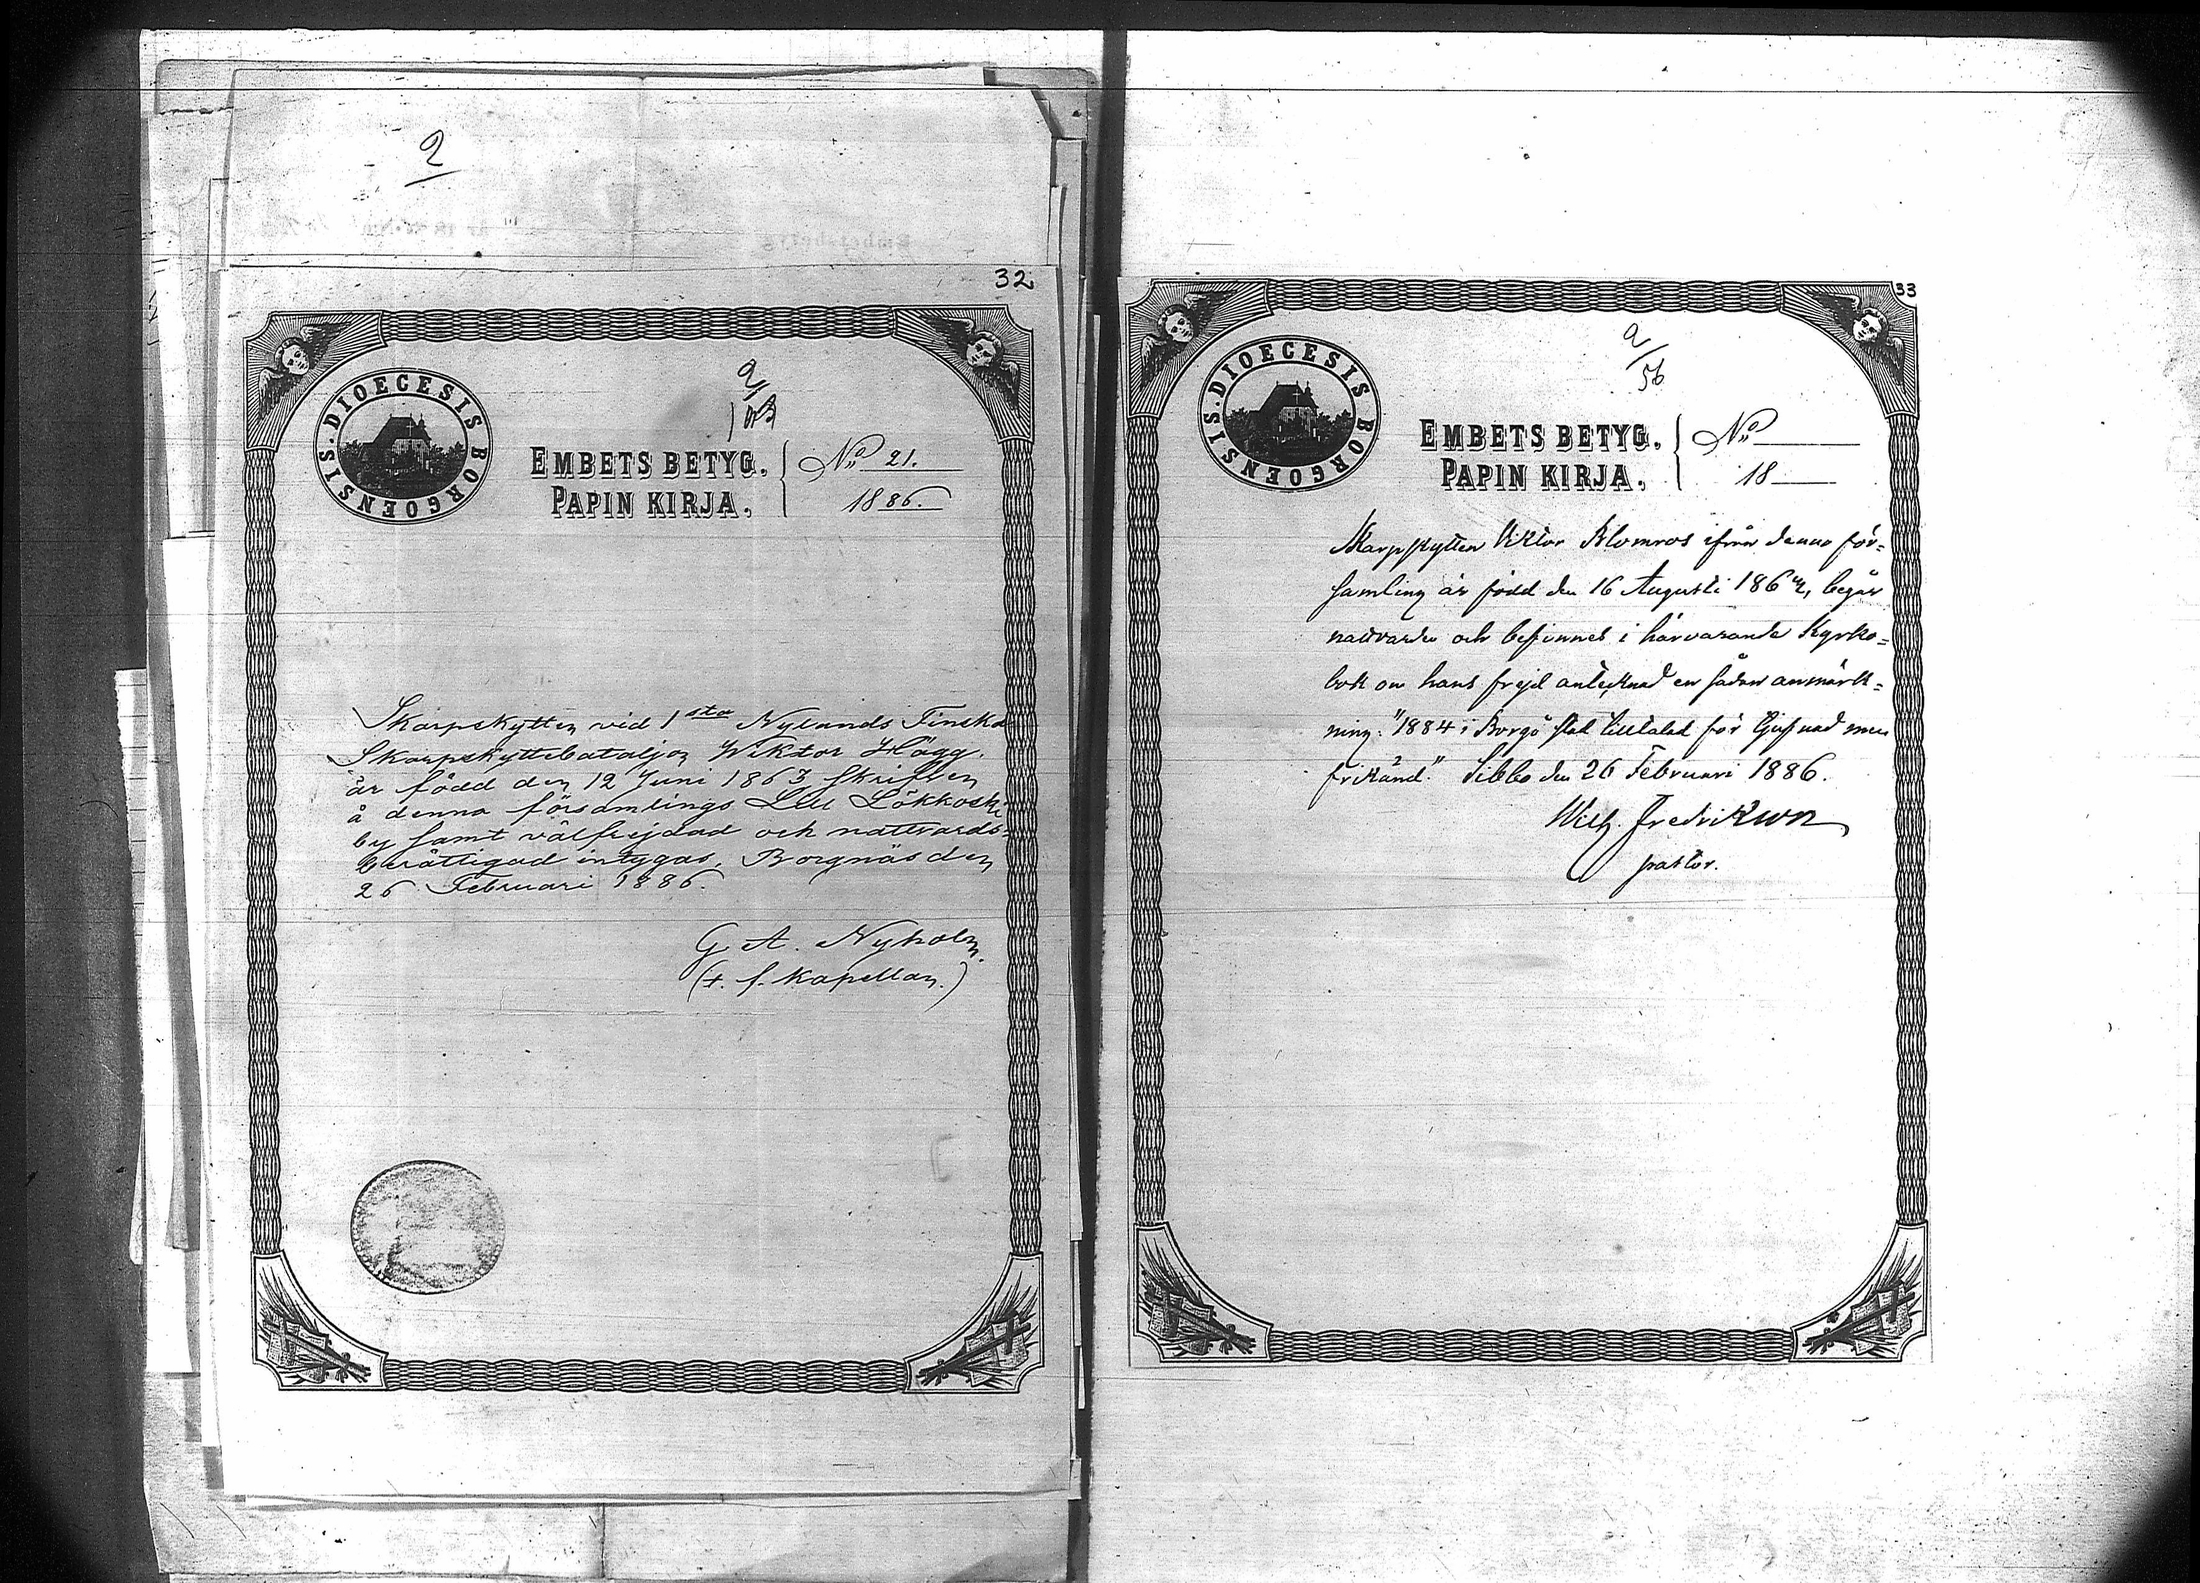 2
32
DIOECESIS BORGOENSIS.
2/103
EMBETS BETYG.
PAPIN KIRJA,
No 21.
1886.
Skarpskytten vid 1sta Nylands Finska
Skarpskyttebataljon Wiktor Hägg,
är född den 12 Juni 1863 skrifven
å denna församlings Lill Lökkoski
by samt välfrejdad och nattvards-
berättigad intygas. Borgnäs den
26 Februari 1886.
G. A. Nyholm.
(t. f. kapellan.)
33
DIOECESIS BORGOENSIS.
2/56
EMBETS BETYG.
PAPIN KIRJA,
No
18
Skarpskytten Viktor Blomros ifrån denna för-
samling är född den 16 Augusti 1862, begår
nattvarden och befinnes i härvarande kyrko-
bok om hans frejd antecknad en sådan anmärk-
ning: "1884 i Borgå stad tilltalad för tjufnad men
frikänd." Sibbo den 26 Februari 1886.
Wilh. Fredrikson
pastor.